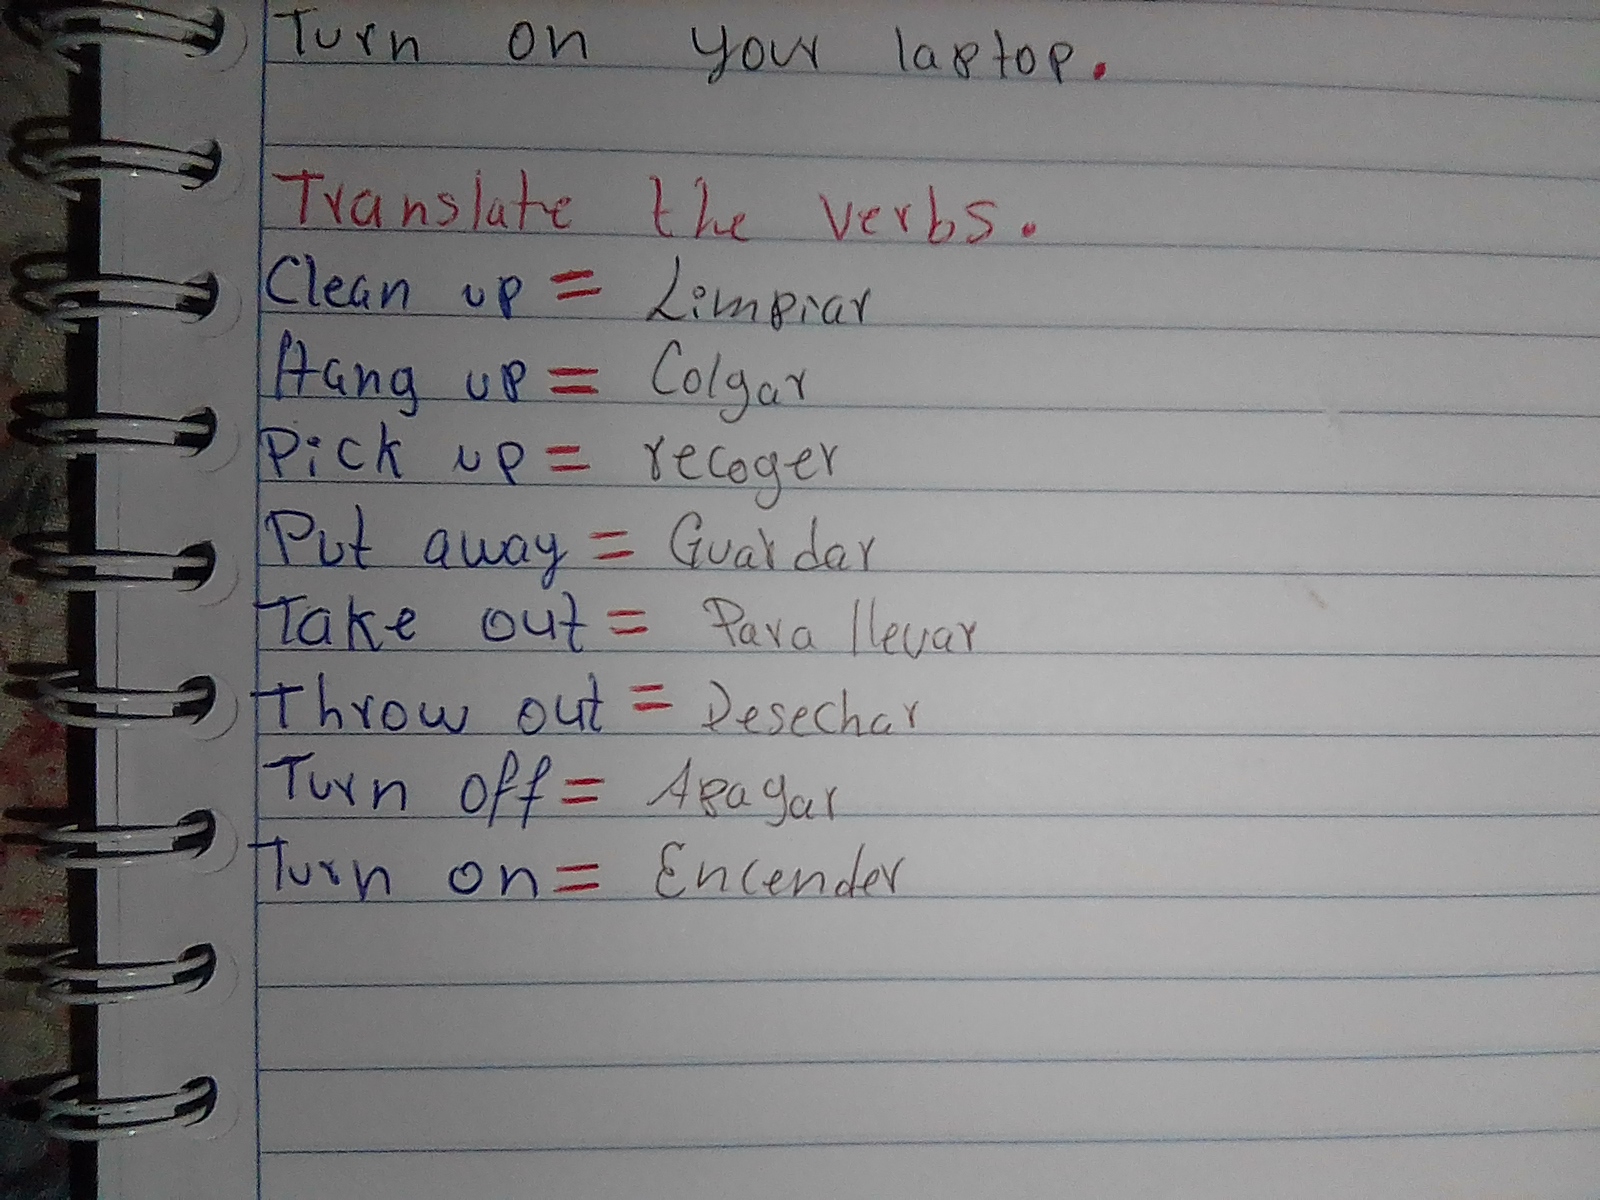 Turn on your laptop.
Translate the verbs.
Clean up = Limpiar
Hang up = Colgar
Pick up = recoger
Put away = Guardar
Take out = Para llevar
Throw out = Desechar
Turn off = Apagar
Turn on = Encender